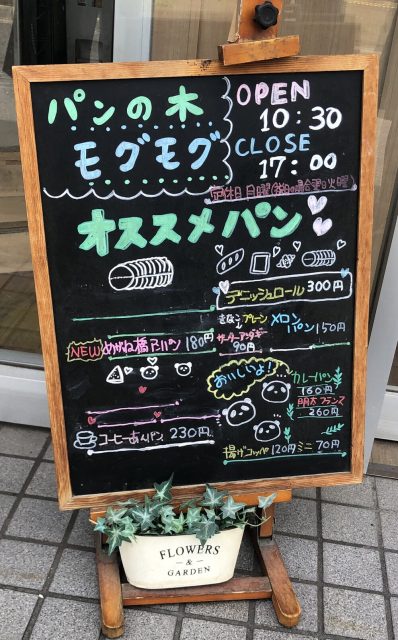 パンの木
モグモグ
OPEN
10:30
CLOSE
17:00
定休日 日曜
オススメパン
デニッシュロール 300円
きなこ プレーン
サーターアンダギー
90円
メロン
パン 150円
NEW めがね橋パン 180円
おいしいよ!
カレーパン
160円
明太フランス
260円
コーヒーあんパン 230円
揚げコッペ 120円 ミニ 70円
FLOWERS
&
GARDEN